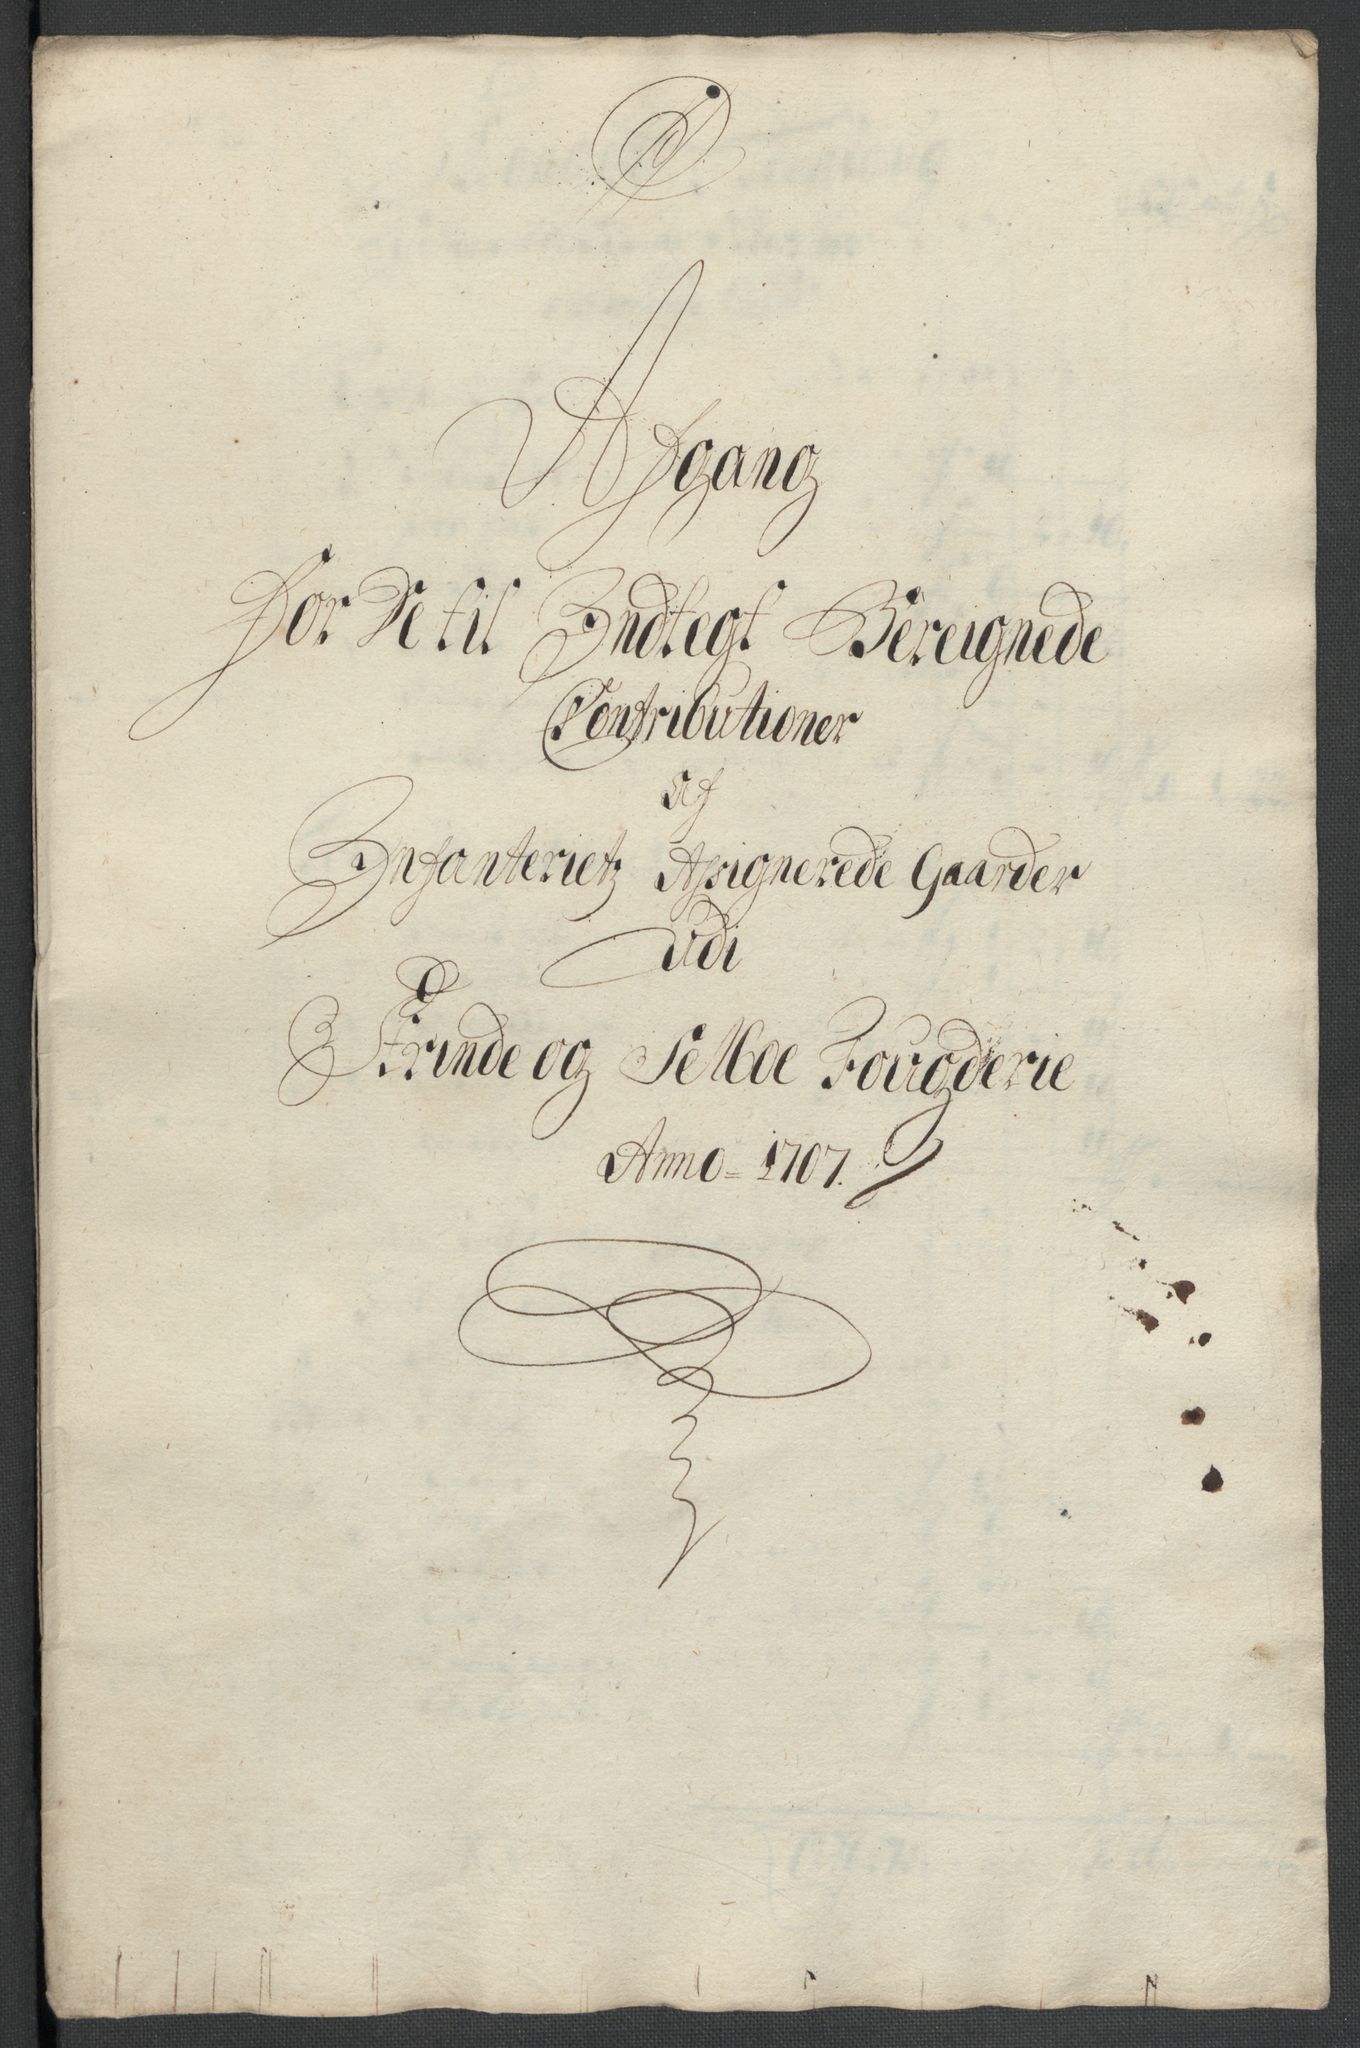 Afgang
For De til Indtegt Bereignede
Contributioner
Af
Infanteriets Assignerede Gaarder
Udi
Strinde og Selboe Fougderie
Anno 1707.